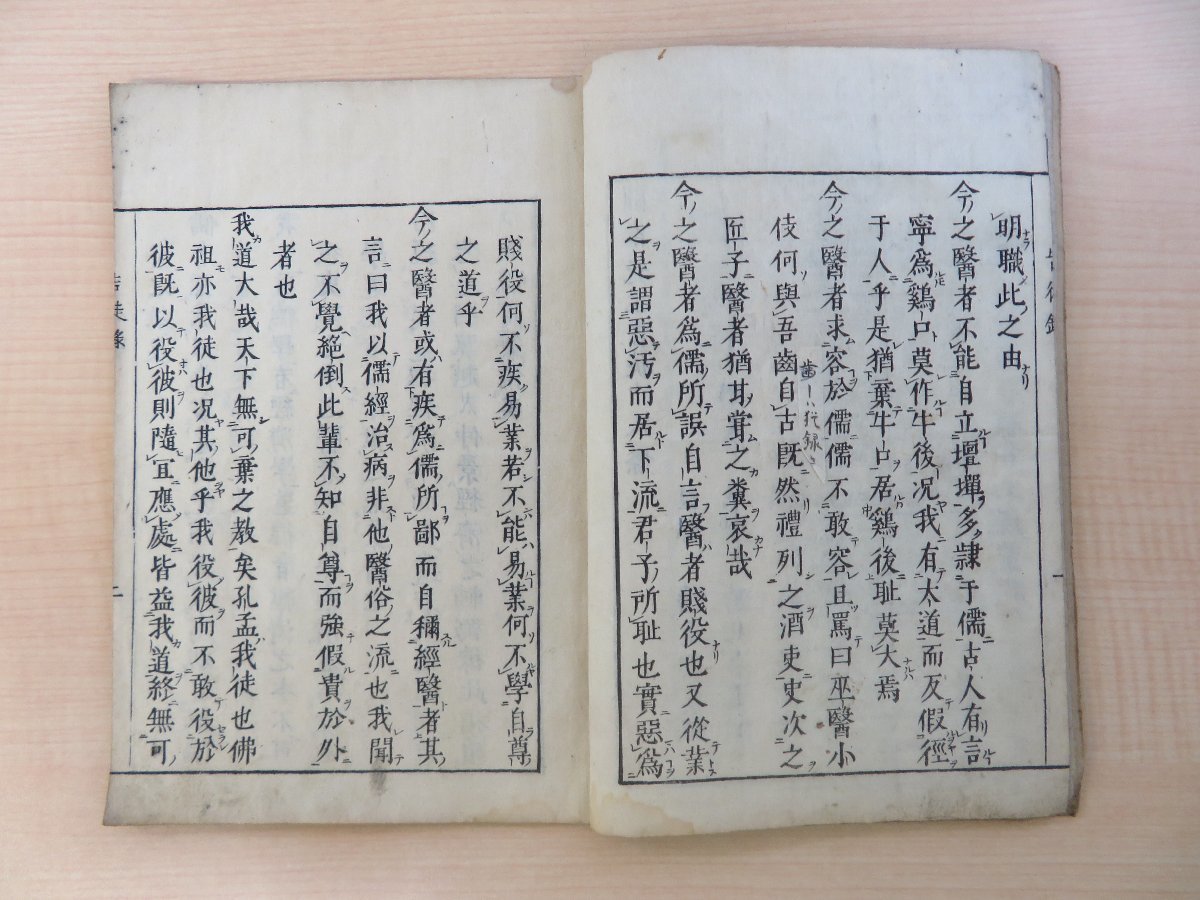 明職此之由
今之醫者不能自立壇墠多隷于儒古人有言
寧爲鷄口莫作牛後况我有大道而反假徑
于人乎是猶棄牛口居鷄後耻莫大焉
今之醫者求容於儒儒不敢容且罵曰巫醫小
伎何與吾齒自古既然禮列之酒吏吏次之
匠子醫者猶甘嘗之糞哀哉
今之醫者爲儒所誤自言醫者賤役也又從業
之是謂惡汚而居下流君子所耻也實惡爲
賤役何不疾易業若不能易業何不學自尊
之道乎
今之醫者或有疾爲儒所鄙而自稱經醫者其
言曰我以儒經治病非他醫俗之流也我聞
之不覺絶倒此輩不知自尊而強假貴於外
者也
我道大哉天下無可棄之教矣孔孟我徒也佛
祖亦我徒也况其他乎我役彼而不敢役於
彼既以役彼則隨宜應處皆益我道終無可
二